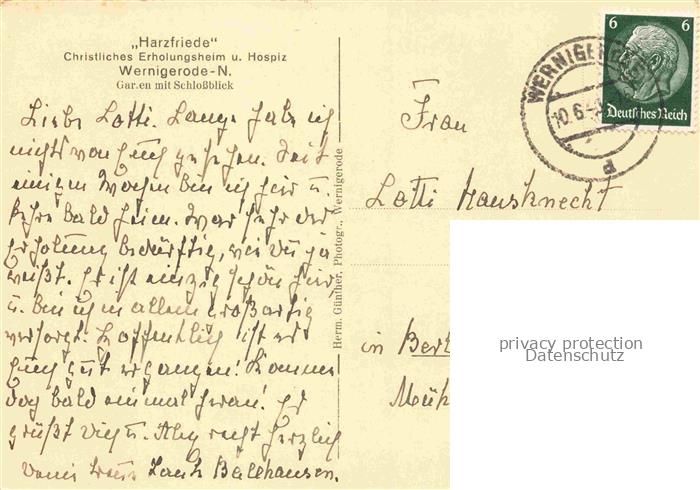 „Harzfriede“
Christliches Erholungsheim u. Hospiz
Wernigerode-N.
Gar.en mit Schloßblick
Liebe Lotti. Lange habe ich
nichts von Euch gesehen. Seit
einigen Wochen bin ich hier u.
kehre bald heim. War sehr der
Erholung bedürftig, wie Du ja
weißt. Es ist einzig schön hier,
u. bin ich in allem großartig
versorgt. Hoffentlich ist es
Euch gut ergangen! Kommen
doch bald einmal heran! Es
grüßt Dich u. Alle recht herzlich
Deine Tante Bälkhausen.
Herm. Günther, Photogr., Wernigerode
Frau
Lotti Hausknecht
in Berl
Müh
WERNIGERODE
10.6.4
d
6 6
Deutsches Reich
privacy protection
Datenschutz